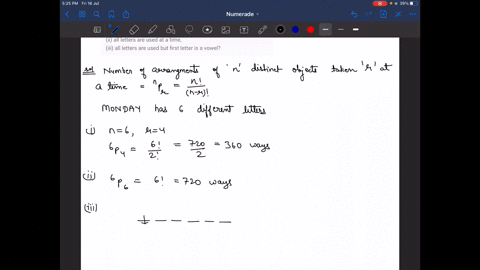 5:25 PM Fri 16 Jul
39%
Numerade
(ii) all letters are used at a time,
(iii) all letters are used but first letter is a vowel?
Sol Number of arrangments of 'n' distinct objects taken 'r' at
a time = ⁿPᵣ = n!/(n-r)!
MONDAY has 6 different letters
i) n=6, r=4
⁶P₄ = 6!/2! = 720/2 = 360 ways
(ii) ⁶P₆ = 6! = 720 ways
(iii)